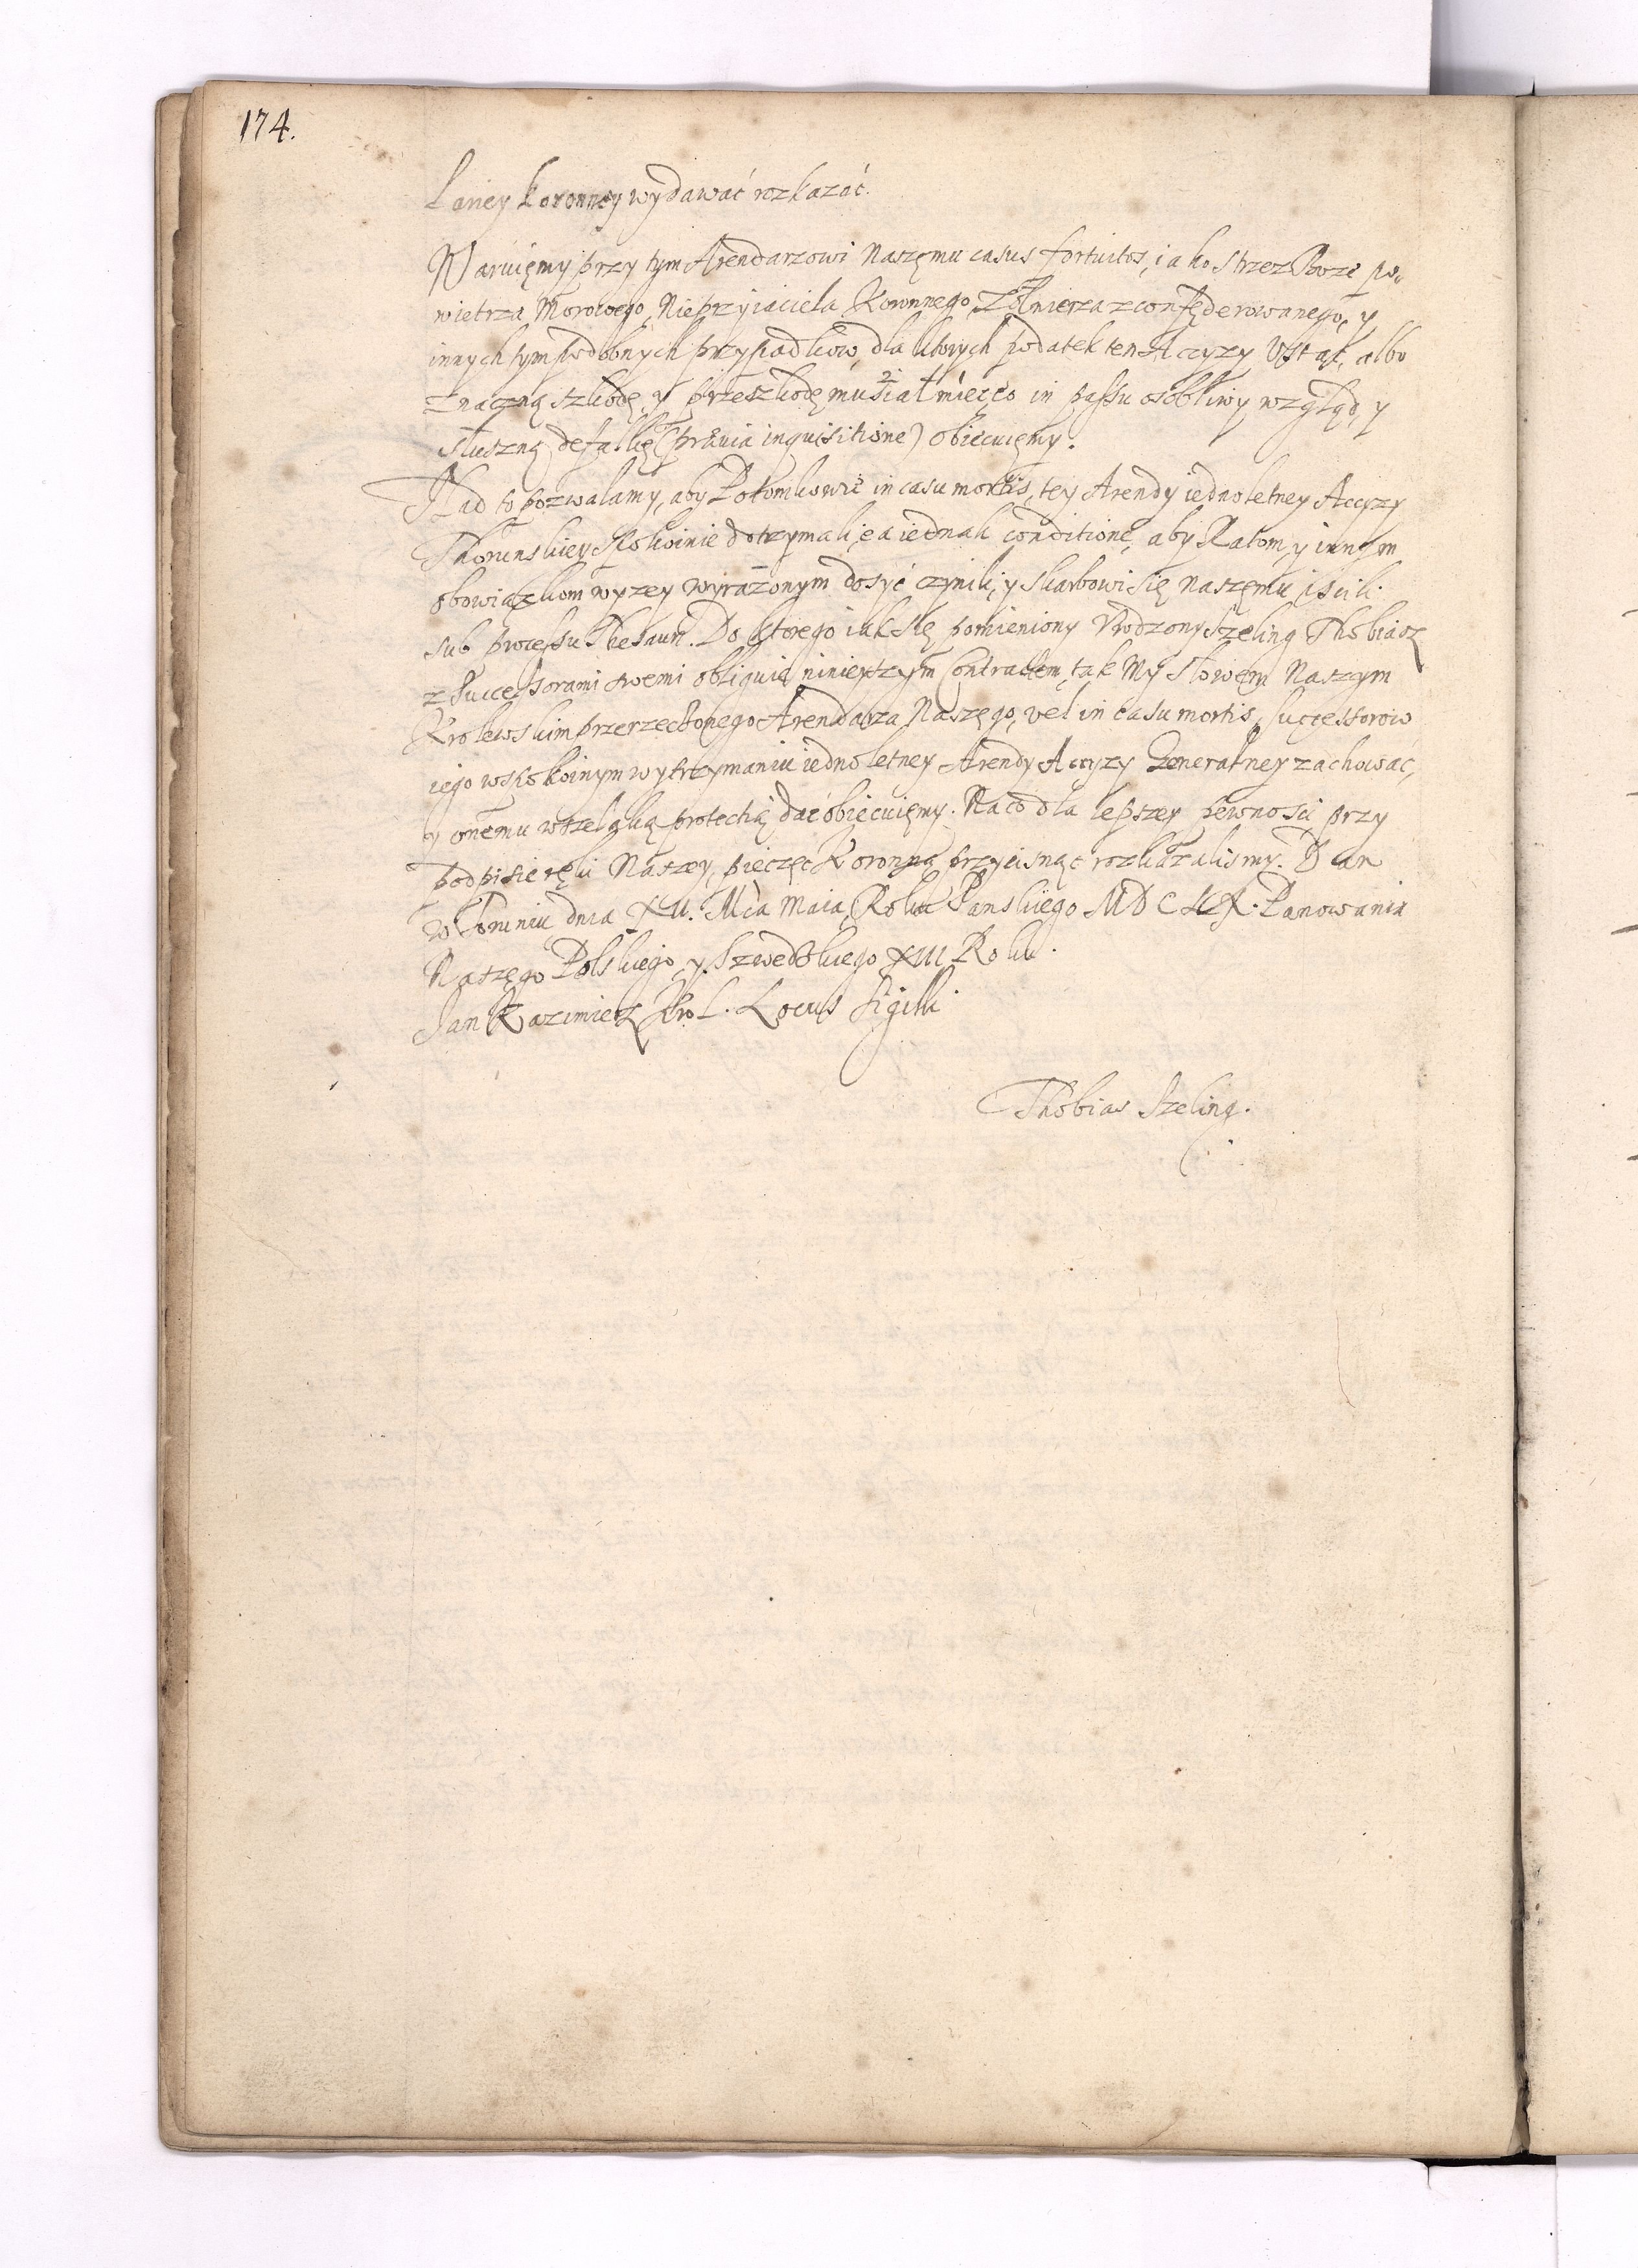 174.
Laney koronney wydawać rozkazać.
Waruięmy przy tym Arendarzowi Naszęmu casus fortuitos, iako strzez Boze po,
wietrza Morowego, Nieprzyiaciela Koronnego, Zolnierza zconfęderowanego, y
innych tym podobnych przypadkow, dla ktorych podatek ten Accyzy Ustał, albo
znaczną szkodę, y przeszkodę musiał mieć, eo in passu osobliwy wzgląd, y
słuszną defalkę (praevia inquisitione) obiecuięmy.
Nad to pozwalamy, aby Potomkowie in casu mortis, tey Arendy iednoletney Accyzy
Thorunskiey spokoinie dotrzymali, ea iednak conditione, aby Ratom, y innym
obowiązkom wyzey wyrażonym dosyć czynili, y skarbowi się naszęmu iscili
sub processu Thesauri. Do ktorego iak się pomieniony Urodzony Szeling Thobiasz
z Successorami swemi obliguie ninieyszym Contractem, tak My słowem Naszym
Krolewskim przerzeczonego Arendarza Naszęgo, vel in casu mortis, successorow
iego wspokoinym wytrzymaniu iednoletney Arendy Accyzy Generalney zachować,
y onemu wszelaką protectią dać obiecuięmy. Na co dla lepszey pewnosci przy
podpisie ręki Naszey, pieczęć Koronną przycisnąć rozkazalismy. Dan
w Toruniu dnia XII. Mca Maia, Roku Panskiego MDCLX. Panowania
Naszęgo Polskiego, y Szwedzkiego XIII Roku.
Jan Kazimierz Krol. Locus Sigilli.
Thobias Szeling.